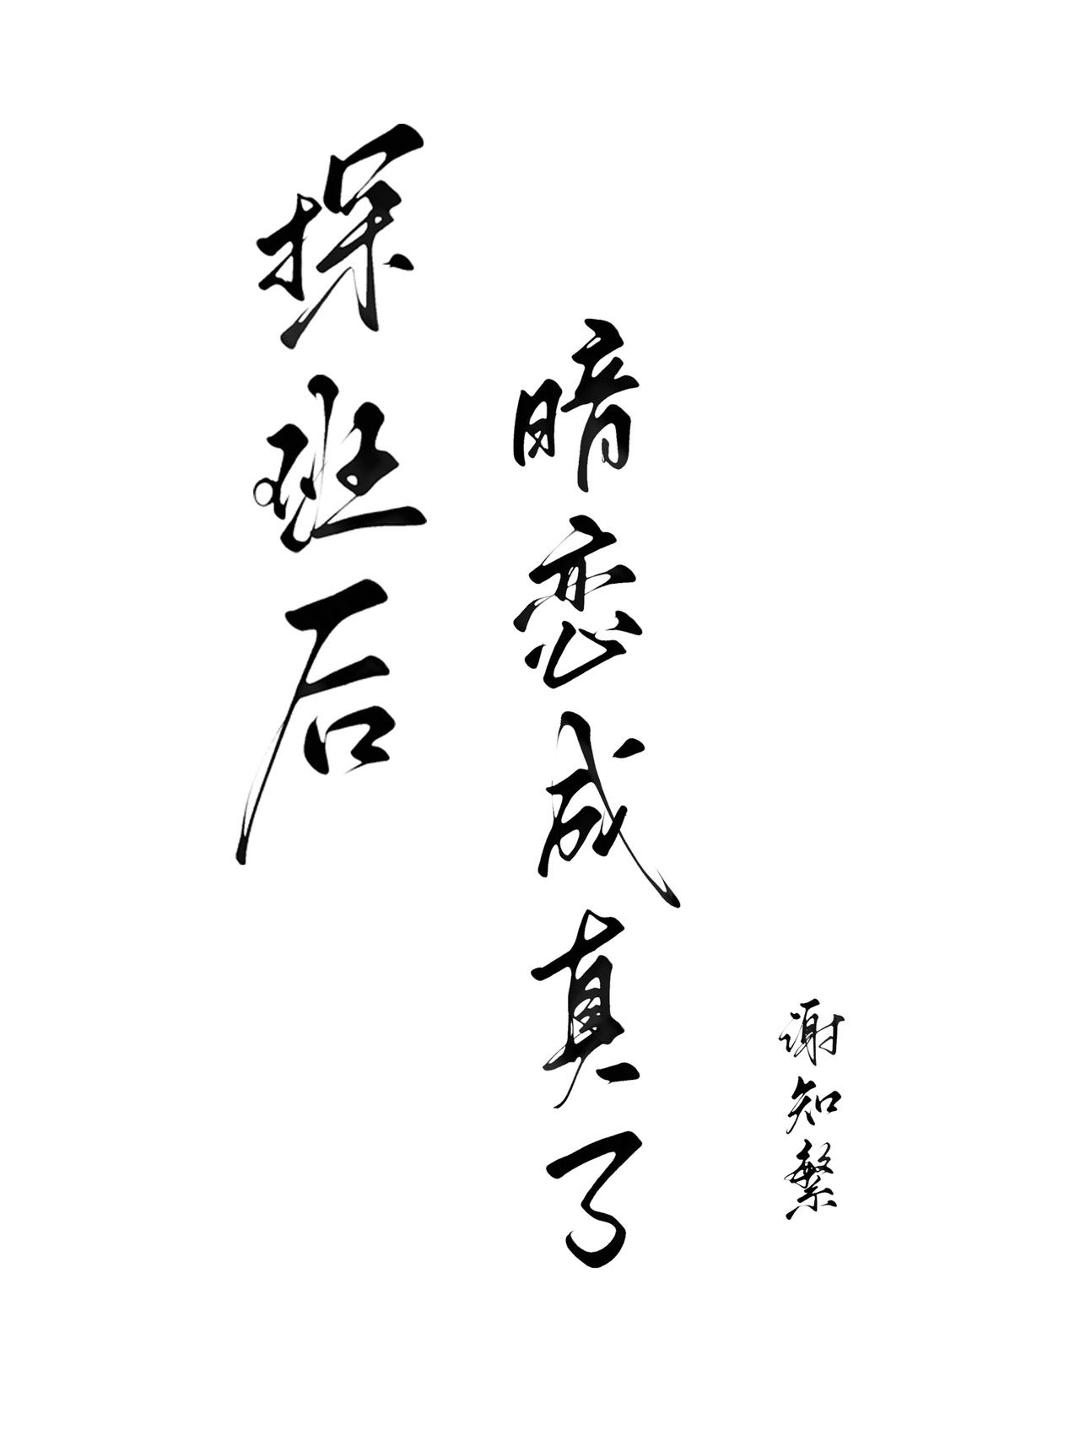 探班后
暗恋成真了
谢知繁